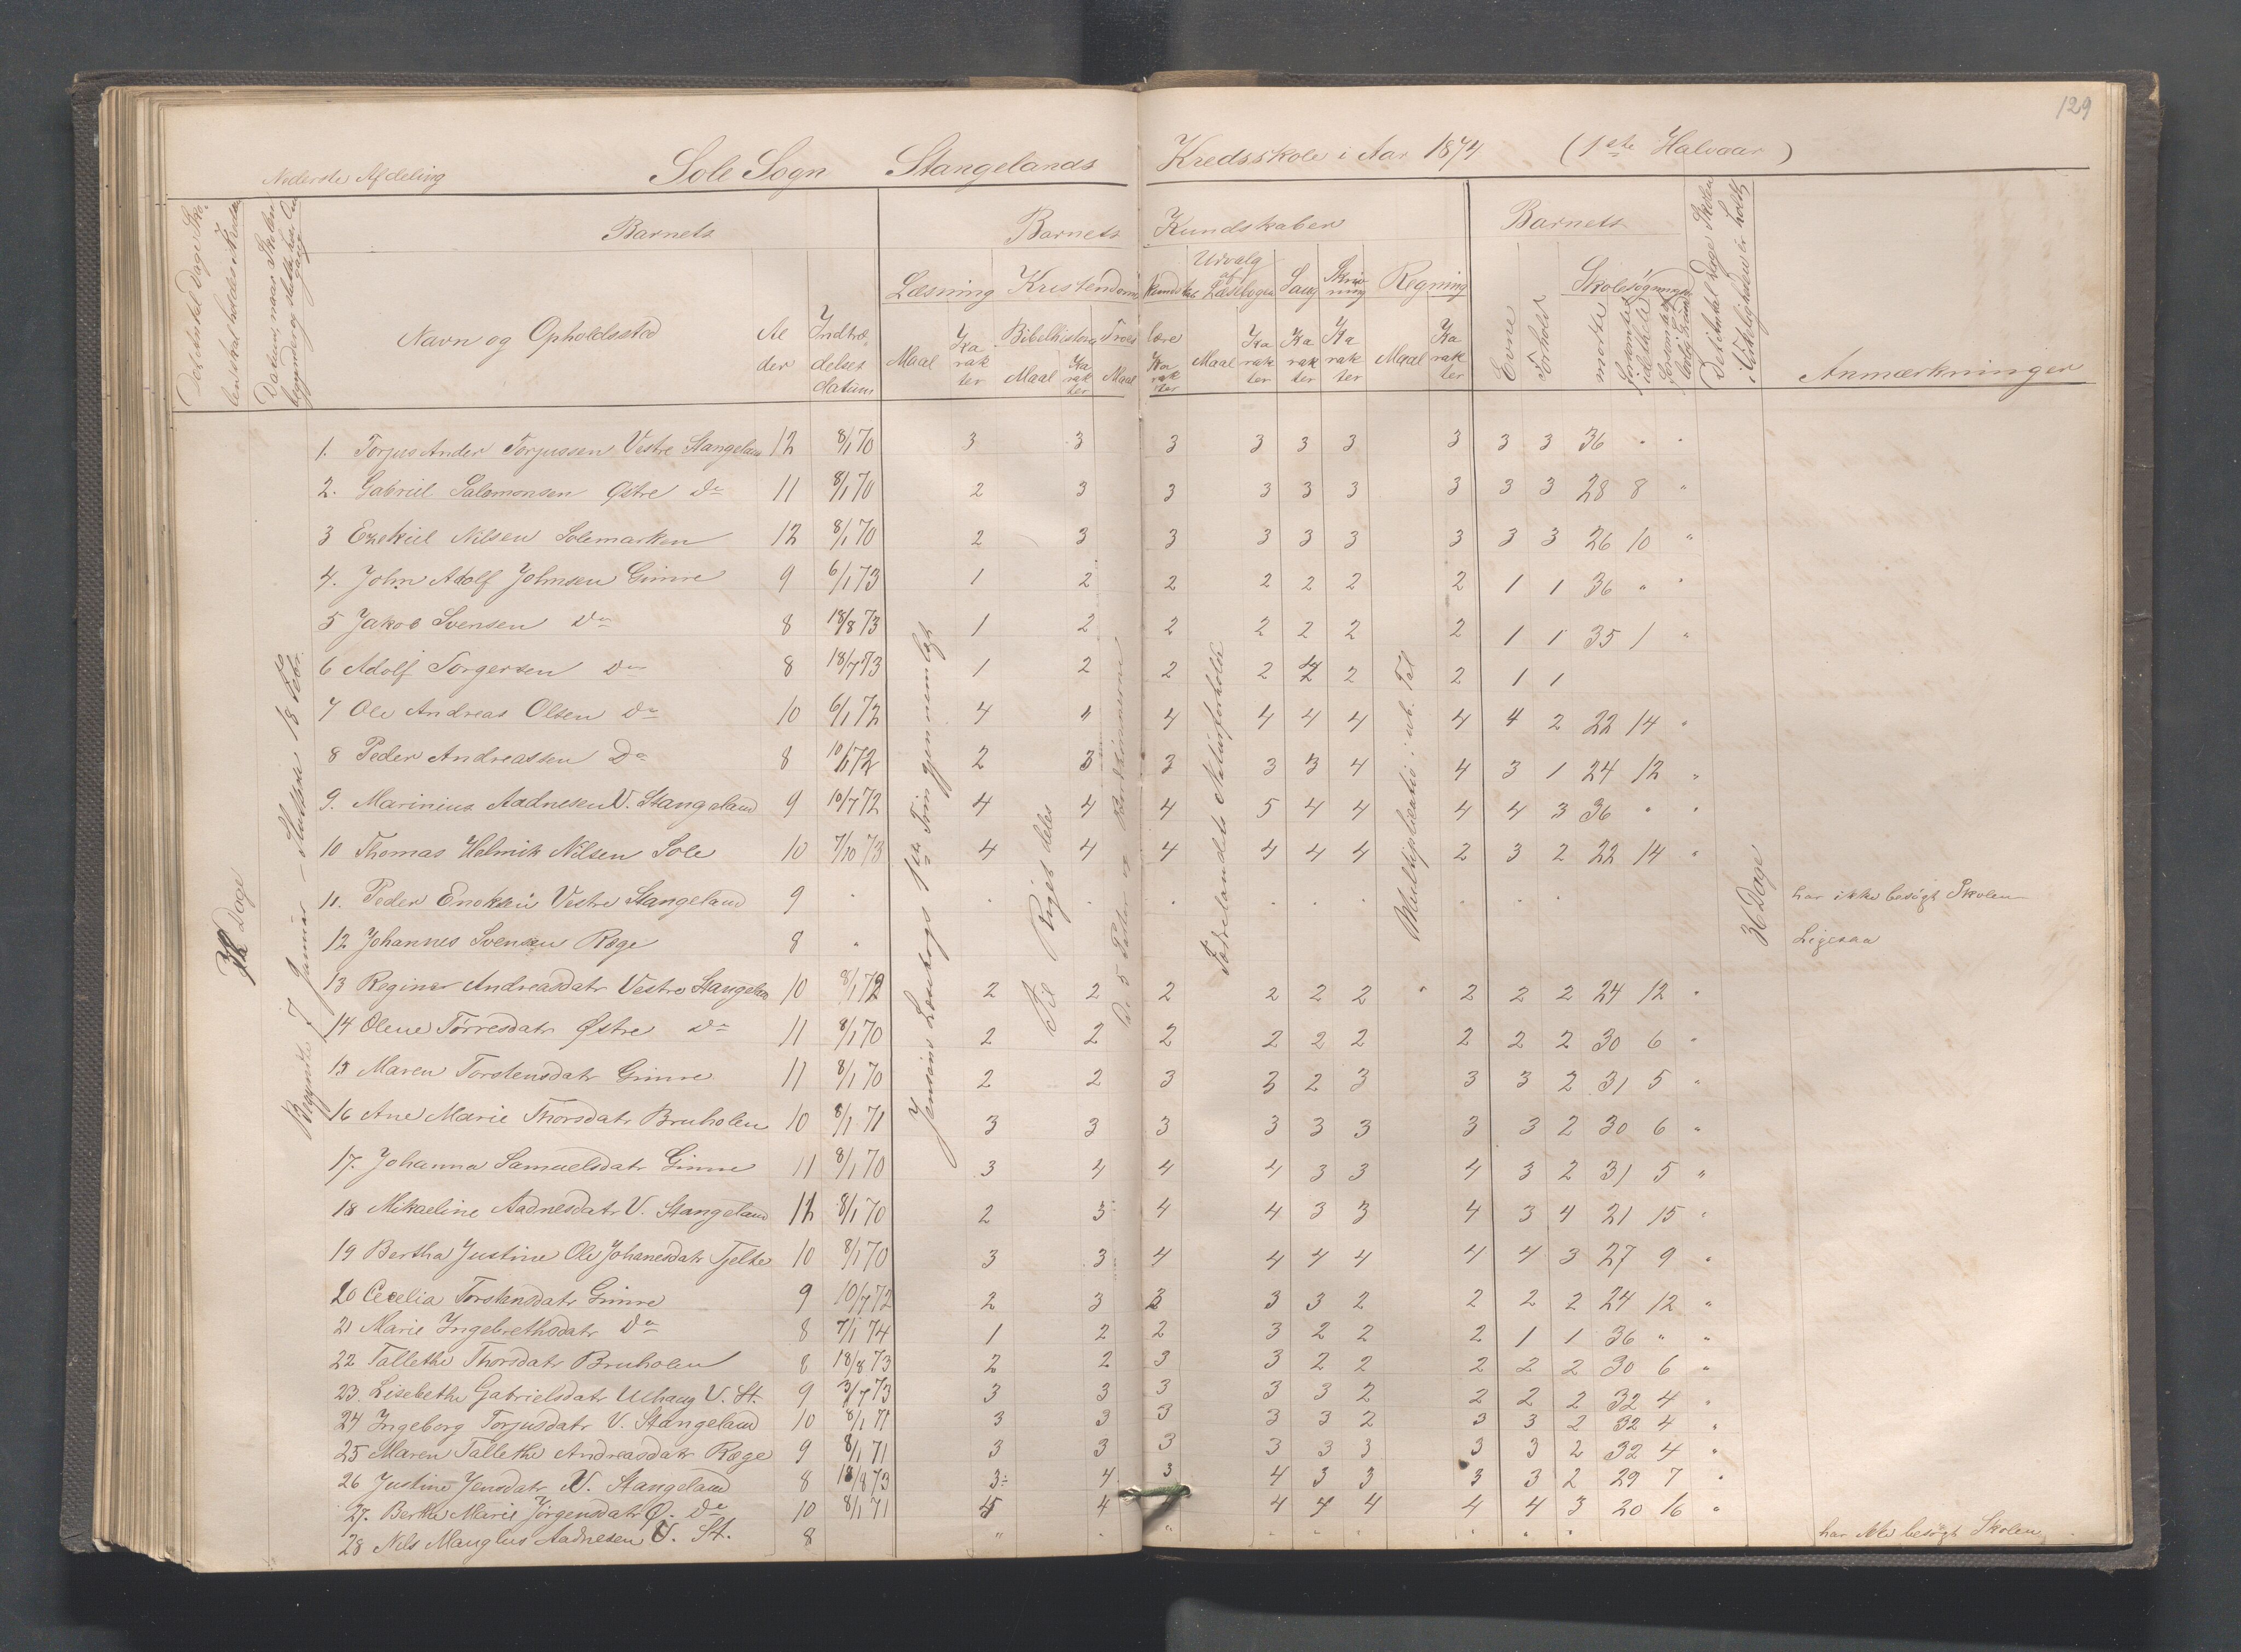 129
Nederste Afdeling Sole Sogn Stangelands Kredsskole i Aar 1874 (1ste Halvaar)
Barnets Barnets Kundskaber Barnets
Navn og Opholdssted Alder Indtrædelses datum
Læsning Kristendoms kundskab Udvalg af Læsebogen Sang Skrivning Regning Evne Forhold Skolesøgning
Maal Karakter Bibelhistorie Troeslære Maal Karakter Maal Karakter Karakter Karakter Karakter Maal Karakter mødte forsømte Anmærkninger
36 Dage
Begyndte 7 Januar – Sluttede 18 Febr.
Jensens Læsebogs 1ste Trin gjennemlagt
Til Riget deles
De 5 Parter og
Fædrelandets Naturforholde
Multiplikation i ub. Tal
36 Dage
1. Torjus Ander Torjussen Vestre Stangeland 12 8/1 70 3 3 3 3 3 3 3 3 3 36 " "
2. Gabriel Salomonsen Østre do 11 8/1 70 2 3 3 3 3 3 3 3 3 28 8 "
3 Ezekiel Nilsen Solemarken 12 8/1 70 2 3 3 3 3 3 3 3 3 26 10 "
4. John Adolf Johnsen Gimre 9 6/1 73 1 2 2 2 2 2 2 1 1 36 " "
5 Jakob Svensen do 8 18/8 73 1 2 2 2 2 2 2 1 1 35 1 "
6 Adolf Torgersen do 8 18/7 73 1 2 2 2 2 2 2 1 1
7 Ole Andreas Olsen do 10 6/1 72 4 4 4 4 4 4 4 4 2 22 14 "
8 Peder Andreassen Do 8 10/1 72 2 3 3 3 3 4 4 3 1 24 12 "
9. Marinius Aadnesen V. Stangeland 9 10/7 72 4 4 4 5 4 4 4 4 3 36 " "
10 Thomas Helmik Nilsen Sole 10 7/10 73 4 4 4 4 4 4 2 3 2 22 14 "
11. Peder Enoksen Vestre Stangeland 9 " har ikke besøgt Skolen
12 Johannes Svensen Ræge 8 " Ligesaa
13 Regine Andreasdatr Vestre Stangeland 10 8/1 72 2 2 2 2 2 2 " 2 2 2 24 12 "
14 Olene Tørresdatr Østre do 11 8/1 70 2 2 2 2 2 2 2 2 2 30 6 "
15 Maren Torstensdatr Gimre 11 8/1 70 2 2 3 3 2 3 3 3 2 31 5 "
16 Ane Marie Thorsdatr Bruholen 10 8/1 71 3 3 3 3 3 3 3 3 2 30 6 "
17. Johanna Samuelsdatr Gimre 11 8/1 70 3 4 4 4 3 3 4 3 2 31 5 "
18 Mikaeline Aadnesdatr V. Stangeland 11 8/1 70 2 3 4 4 3 3 4 3 4 21 15 "
19 Bertha Justine Ole Johanesdatr Tjelte 10 8/1 70 3 3 4 4 4 4 4 4 3 27 9 "
20 Cecelia Torstensdatr Gimre 9 10/7 72 2 3 3 3 3 2 2 2 2 24 12 "
21 Marie Ingebrethsdatr do 8 7/1 74 1 2 2 3 2 2 2 1 1 36 " "
22 Tallethe Thorsdatr Bruholen 8 18/8 73 2 2 3 3 2 2 2 2 2 30 6 "
23. Lisebethe Gabrielsdatr Uhaug V. St. 9 3/7 73 3 3 3 3 3 2 2 2 2 32 4 "
24 Ingeborg Torjusdatr V. Stangeland 10 8/1 71 3 3 3 3 3 2 3 3 2 32 4 "
25 Maren Tallethe Andreasdatr Ræge 9 8/1 71 3 3 3 3 3 3 3 3 2 32 4 "
26 Justine Jensdatr V. Stangeland 8 18/8 73 3 4 3 4 3 3 3 3 2 29 7 "
27. Berthe Marie Jörgensdatr Ø. do 10 8/1 71 4 4 4 4 4 4 4 3 20 16 "
28 Nils Manglus Aadnesen V. St. 8 " " " har ikke besøgt Skolen